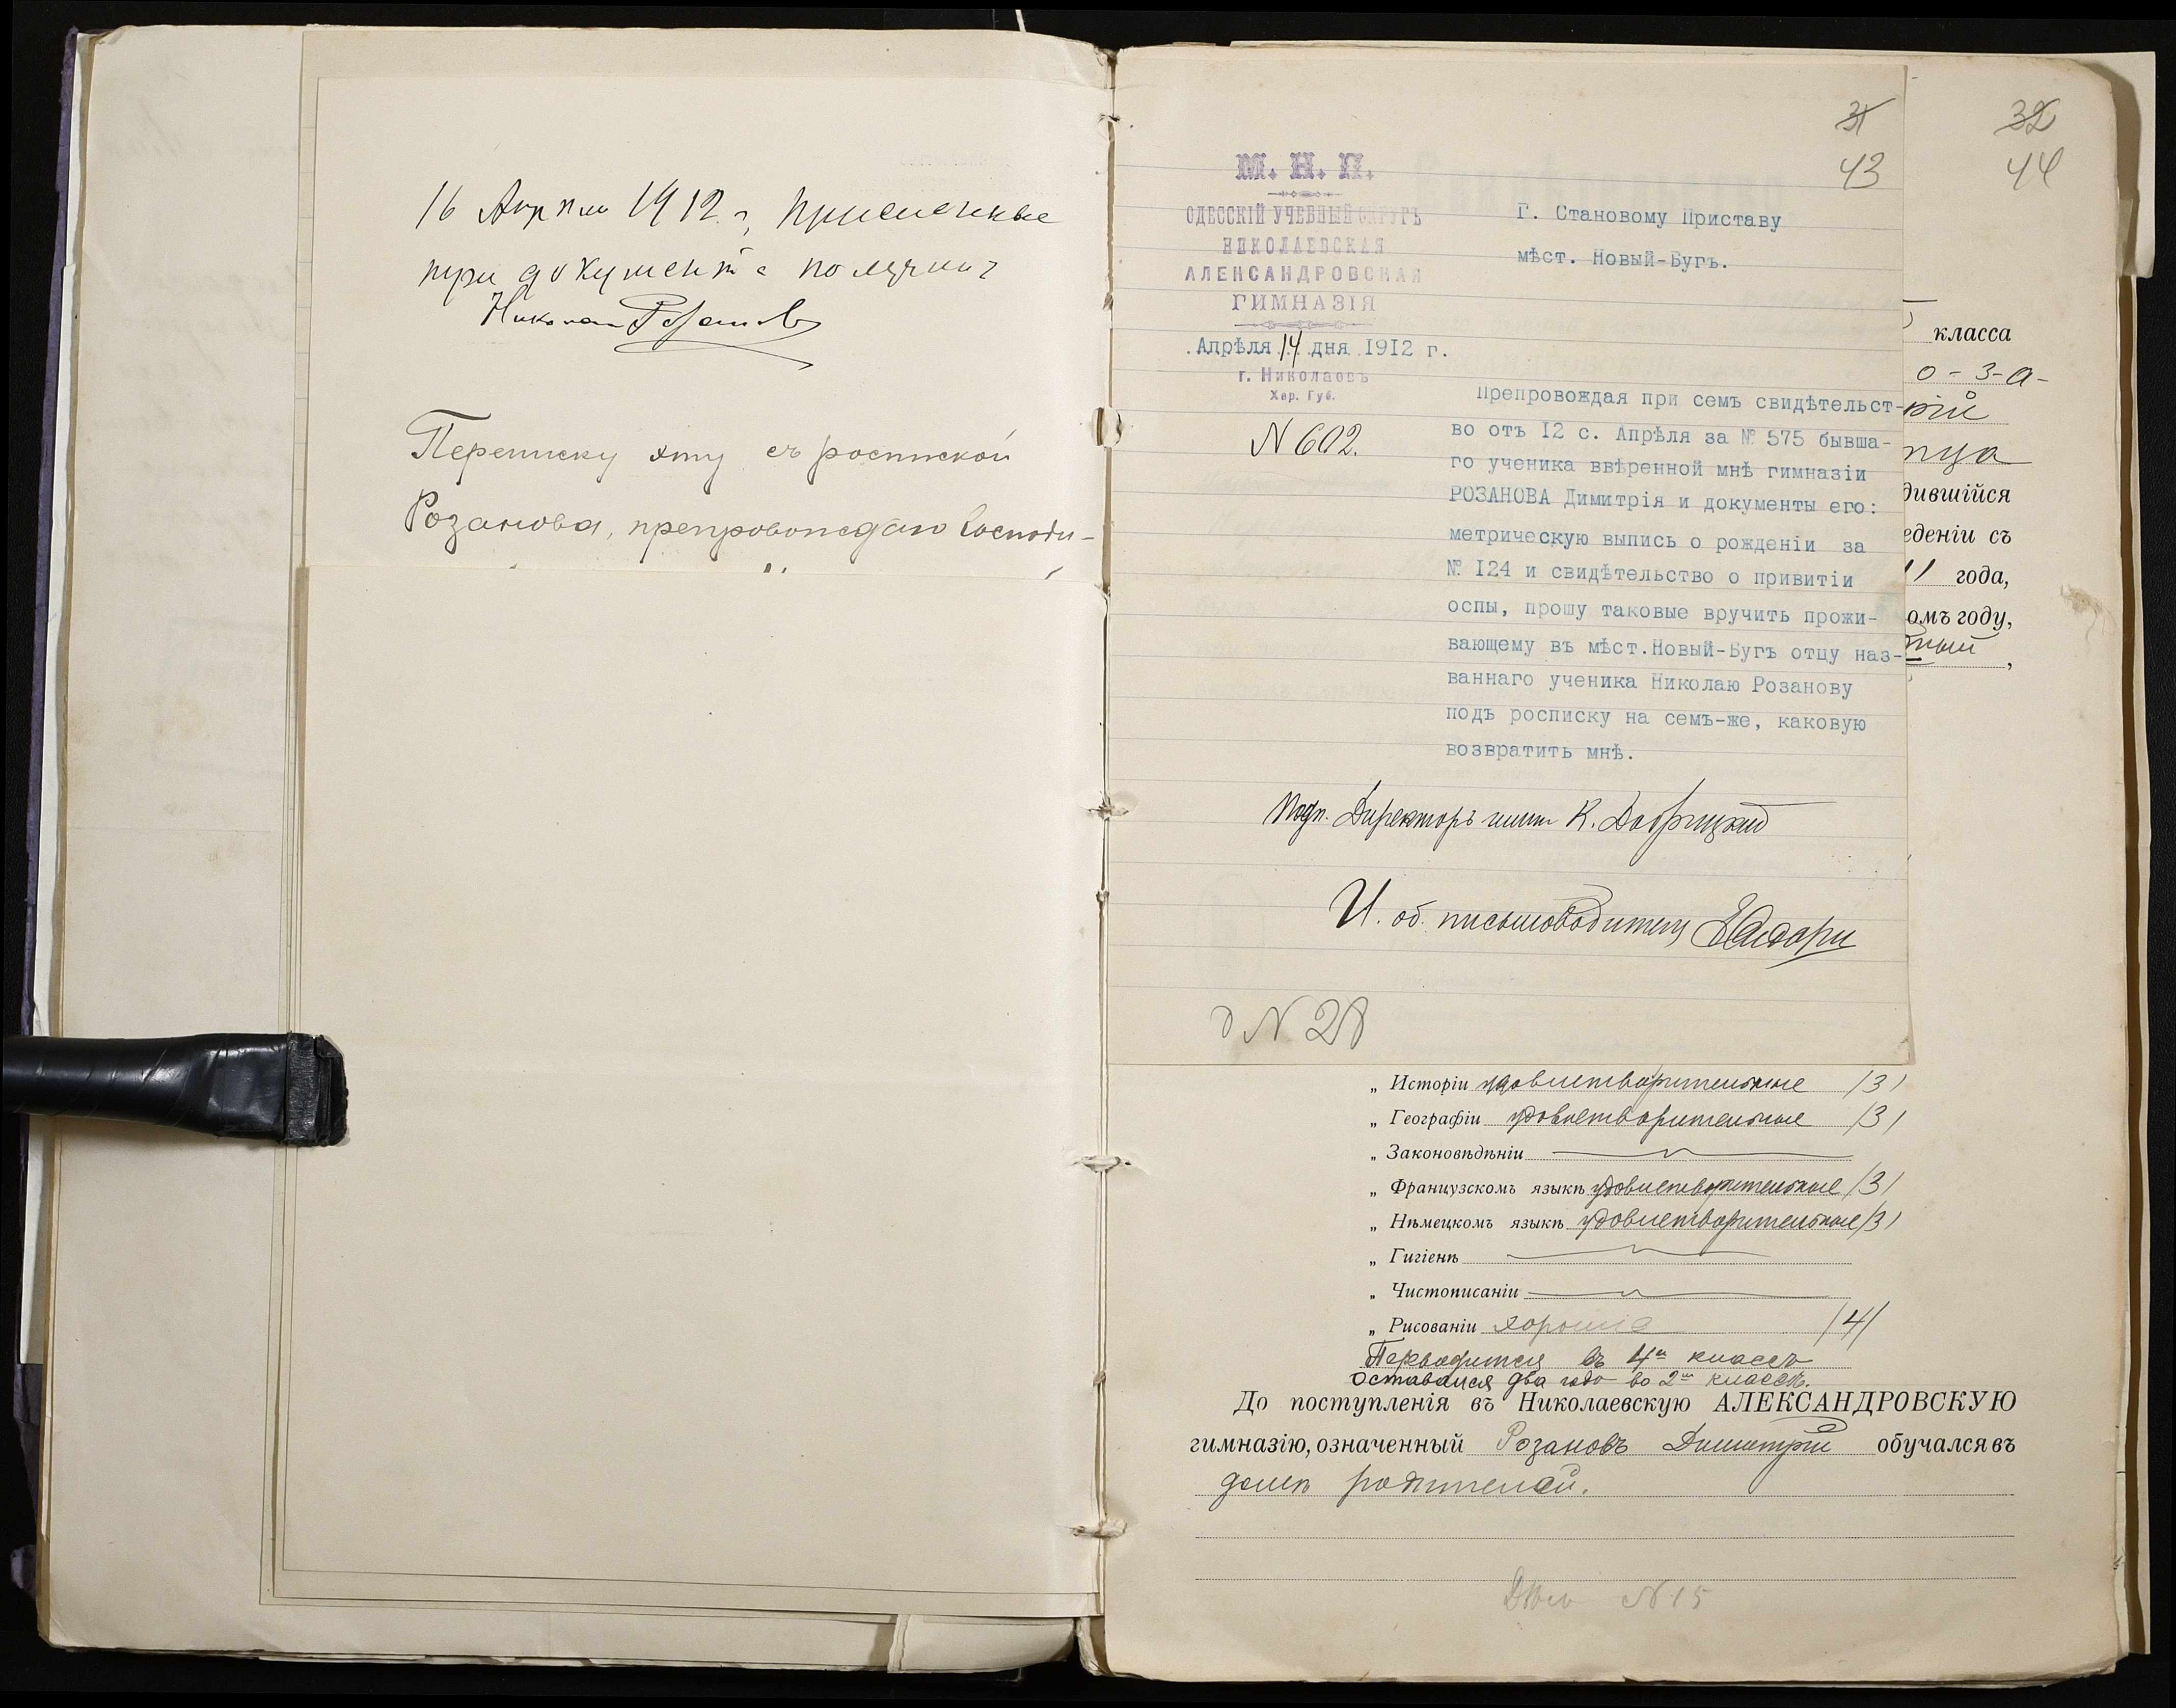 16 Апрѣля 1912 г, присланные
три документа получилъ
Николай Розановъ
Переписку эту съ роспиской
Розанова, препровождаю Господи-
31
43
М. Н. П.
ОДЕССКІЙ УЧЕБНЫЙ ОКРУГЪ
НИКОЛАЕВСКАЯ
АЛЕКСАНДРОВСКАЯ
ГИМНАЗІЯ
Апрѣля 14 дня 1912 г.
г. Николаевъ
Хер. Губ.
N 602.
Г. Становому Приставу
мѣст. Новый-Бугъ.
Препровождая при семъ свидѣтельст-
во отъ I2 с. Апрѣля за № 575 бывша-
го ученика ввѣренной мнѣ гимназіи
РОЗАНОВА Димитрія и документы его:
метрическую выпись о рожденіи за
№ I24 и свидѣтельство о привитіи
оспы, прошу таковые вручить прожи-
вающему въ мѣст.Новый-Бугъ отцу наз-
ваннаго ученика Николаю Розанову
подъ росписку на семъ-же, каковую
возвратить мнѣ.
Подп. Директоръ гимн К.
И. об. письмоводителя
N 28
32
44
класса
о-з-а-
рій
дившійся
еденіи съ
11 года,
омъ году,
„ Исторіи удовлетворительные /3/
„ Географіи удовлетворительные /3/
„ Законовѣдѣніи
„ Французскомъ языкѣ удовлетворительные /3/
„ Нѣмецкомъ языкѣ удовлетворительные /3/
„ Гигіенѣ
„ Чистописаніи
„ Рисованіи хорошіе /4/
Переводится въ 4й классъ
оставался два года во 2мъ классѣ.
До поступленія въ Николаевскую АЛЕКСАНДРОВСКУЮ
гимназію, означенный Розановъ Димитрій обучался въ
домѣ родителей.
N 15